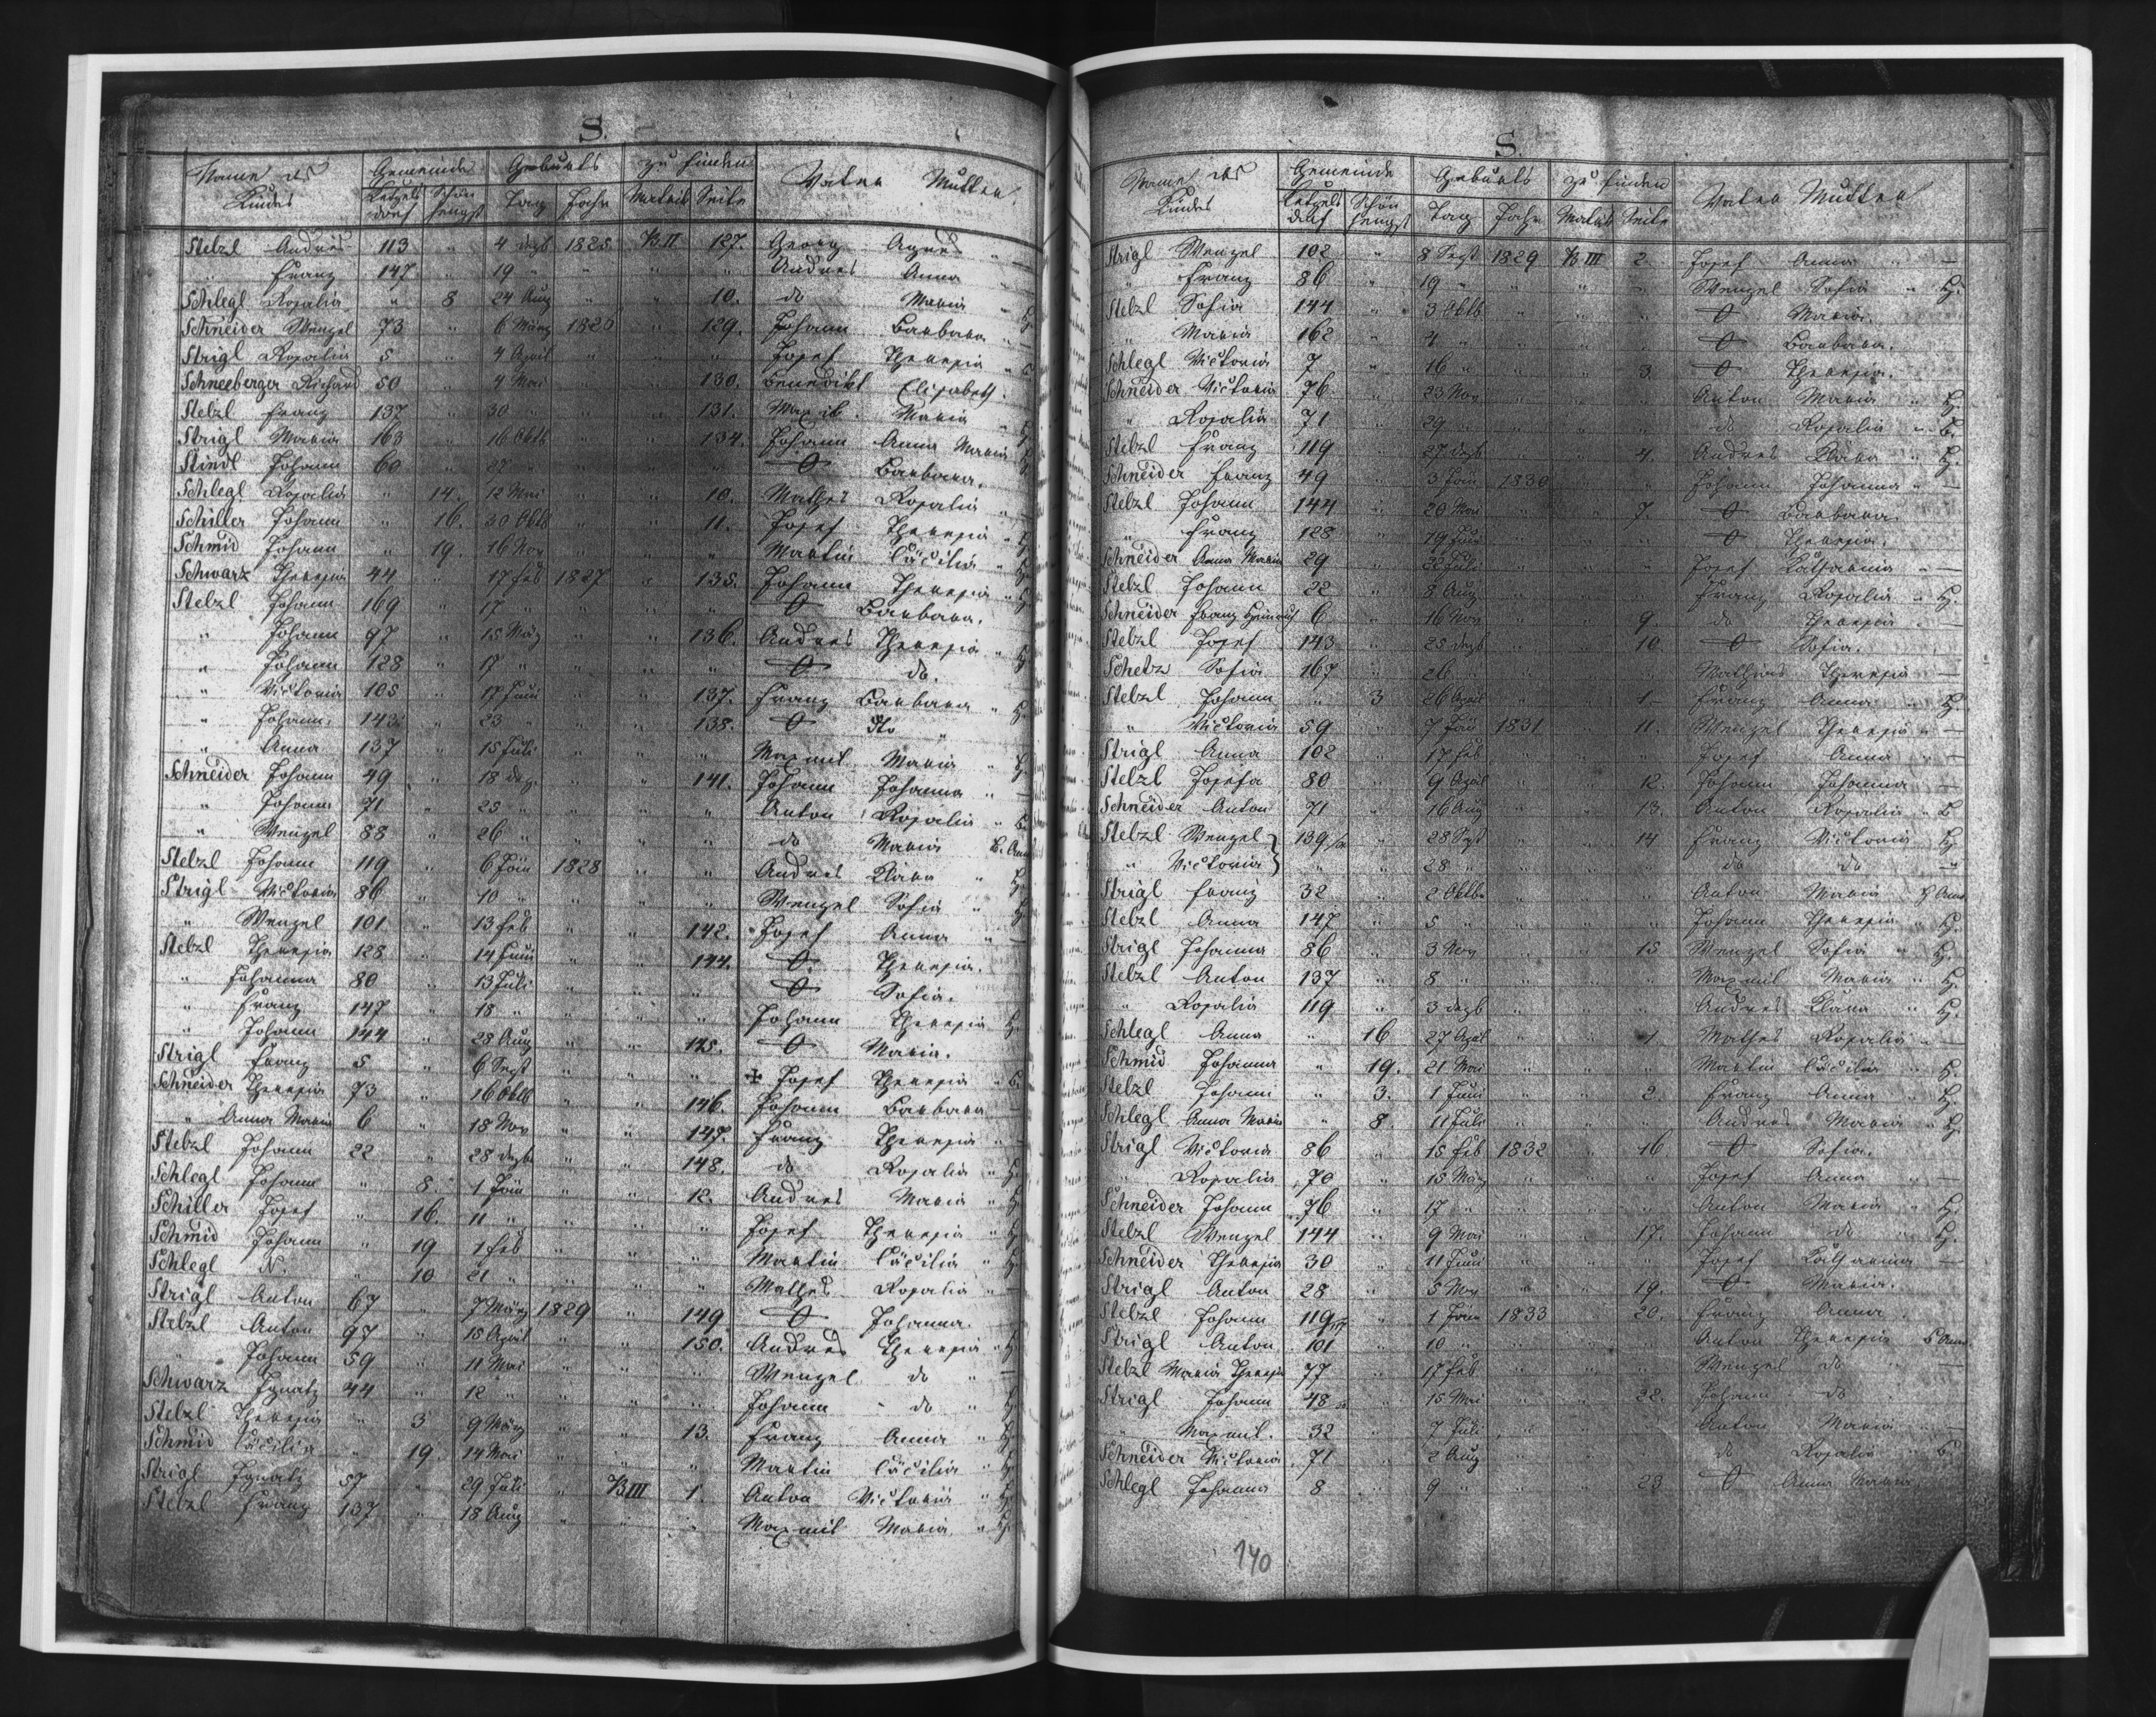 S.
Name des Kindes Gemeinde Geburts zu finden Vater Mutter
Ketzelsdorf Schönhengst Tag Jahr Matrik Seite
Stelzl Andres 113 " 4 Dezb 1825 B II 127. Georg Agnes "
" Franz 147 " 19 " " " " Andres Anna "
Schlegl Rosalia " 8 24 Aug " " 10. do Maria " H.
Schneider Wenzel 73 " 6 März 1826 " 129. Johann Barbara "
Strigl Rosalia 5 " 4 April " " " Josef Theresia "
Schneeberger Richard 50 " 4 Mai " " 130. Benedikt Elisabeth.
Stelzl Franz 137 " 30 " " " 131. Maxmil. Maria "
Strigl Maria 163 " 16 Oktb " " 134. Johann Anna Maria
Stindl Johann 60 " 27 " " " " O Barbara.
Schlegl Rosalia " 14. 12 Mai " " 10. Mathes Rosalia "
Schiller Johann " 16. 30 Oktb " " 11. Josef Theresia " H.
Schmid Johann " 19. 16 Nov " " " Martin Cäcilia " H.
Schwarz Theresia 44 " 17 Feb 1827 " 135. Johann Theresia " H.
Stelzl Johann 169 " 17 " " " " O Barbara.
" Johann 97 " 15 März " " 136. Andres Theresia " H.
" Johann 128 " 17 " " " " O do.
" Victoria 105 " 17 Juni " " 137. Franz Barbara " H.
" Johann 143 " 23 " " " 138. O dto "
" Anna 137 " 15 Juli " " " Maxmil Maria " H.
Schneider Johann 49 " 18 Dez. " " 141. Johann Johanna " —
" Johann 71 " 25 " " " " Anton Rosalia " B.
" Wenzel 88 " 26 " " " " do Maria
Stelzl Johann 119 " 6 Jän 1828 " " Andres Klara " H.
Strigl Victoria 86 " 10 " " " " Wenzel Sofia " H.
" Wenzel 101 " 13 Feb " " 142. Josef Anna " —
Stelzl Theresia 128 " 14 Juni " " 144. O Theresia.
" Johanna 80 " 13 Juli " " " O Sofia.
" Franz 147 " 18 " " " " Johann Theresia H.
" Johann 144 " 28 Aug " " 145. O Maria.
Strigl Franz 5 " 6 Sept " " " ✠ Josef Theresia " B.
Schneider Theresia 73 " 16 Oktb " " 146. Johann Barbara —
" Anna Maria 6 " 18 Nov " " 147. Franz Theresia " —
Stelzl Johann 22 " 28 Dezb " " 148. do Rosalia " H.
Schlegl Johann " 8. 1 Jän " " 12. Andres Maria " H.
Schiller Josef " 16. 11 " " " " Josef Theresia " H.
Schmid Johann " 19 1 Feb " " " Martin Cäcilia " H.
Schlegl N. " 10 21 " " " " Mathes Rosalia "
Strigl Anton 67 " 7 März 1829 " 149. O Johanna.
Stelzl Anton 97 " 15 April " " 150. Andres Theresia " H.
" Johann 59 " 11 Mai " " " Wenzel do " —
Schwarz Ignatz 44 " 12 " " " " Johann do " H.
Stelzl Theresia " 3 9 März " " 13. Franz Anna " H.
Schmid Cäcilia " 19. 14 Mai " " " Martin Cäcilia " H.
Strigl Ignatz 57 " 29 Juli " B III 1. Anton Victoria " H.
Stelzl Franz 137 " 18 Aug " " " Maxmil Maria " H.
S.
Name des Kindes Gemeinde Geburts zu finden Vater Mutter
Ketzelsdorf Schönhengst Tag Jahr Matrik Seite
Strigl Wenzel 102 " 8 Sept 1829 B III 2. Josef Anna " —
" Franz 86 " 19 " " " " Wenzel Sofia " H.
Stelzl Sofia 144 " 3 Oktb " " " O Maria.
" Maria 162 " 4 " " " " O Barbara.
Schlegl Victoria 7 " 16 " " " 3. O Theresia.
Schneider Victoria 76 " 23 Nov " " " Anton Maria " H.
" Rosalia 71 " 29 " " " " do Rosalia " B.
Stelzl Franz 119 " 27 Dezb " " 4. Andres Klara " H.
Schneider Franz 49 " 3 Jän 1830 " " Johann Johanna " —
Stelzl Johann 144 " 20 Mai " " 7. O Barbara.
" Franz 128 " 19 Juni " " " O Theresia.
Schneider Anna Maria 29 " 22 Juli " " " Josef Katharina " —
Stelzl Johann 22 " 8 Aug " " " Franz Rosalia " H.
Schneider Franz Heinrich 6 " 16 Nov " " 9. do Theresia " —
Stelzl Josef 143 " 25 Dezb " " 10. O Sofia.
Schetz Sofia 167 " 26 " " " " Mathias Theresia —
Stelzl Johann " 3 26 April " " 1. Franz Anna " H.
" Victoria 59 " 7 Jän 1831 " 11. Wenzel Theresia " —
Strigl Anna 102 " 17 Feb " " " Josef Anna " —
Stelzl Josefa 80 " 9 April " " 12. Johann Johanna —
Schneider Anton 71 " 16 Aug " " 13. Anton Rosalia " B
Stelzl Wenzel } 139 " 28 Sept " " 14 Franz Victoria H.
" Victoria } " " 28 " " " " do do "
Strigl Franz 32 " 2 Oktb " " " Anton Maria
Stelzl Anna 147 " 5 " " " " Johann Theresia " H.
Strigl Johanna 86 " 3 Nov " " 15 Wenzel Sofia " H.
Stelzl Anton 137 " 8 " " " " Maxmil Maria " H.
" Rosalia 119 " 3 Dezb " " " Andres Klara " H.
Schlegl Anna " 16 27 April " " 1 Mathes Rosalia " —
Schmid Johanna " 19. 21 Mai " " " Martin Cäcilia " H.
Stelzl Johann " 3. 1 Juni " " 2. Franz Anna " H.
Schlegl Anna Maria " 8. 11 Juli " " " Andres Maria " H.
Strigl Victoria 86 " 15 Feb 1832 " 16. O Sofia.
" Rosalia 70 " 15 März " " " Josef Anna " —
Schneider Johann 76 " 17 " " " " Anton Maria " H.
Stelzl Wenzel 144 " 9 Mai " " 17. Johann do H.
Schneider Theresia 30 " 11 Juni " " " Josef Katharina —
Strigl Anton 28 " 5 Nov " " 19. O Maria.
Stelzl Johann 119 " 1 Jän 1833 " 20. Franz Anna
Strigl Anton 101 " 10 " " " " Anton Theresia
Stelzl Maria Theresia 77 " 17 Feb " " " Wenzel do —
Strigl Johann 48 " 15 Mai " " 22. Johann do
" Maxmil. 32 " 7 Juli " " " Anton Maria —
Schneider Victoria 71 " 2 Aug " " " do Rosalia B
Schlegl Johanna 8 " 9 " " " 23 O Anna Maria
140